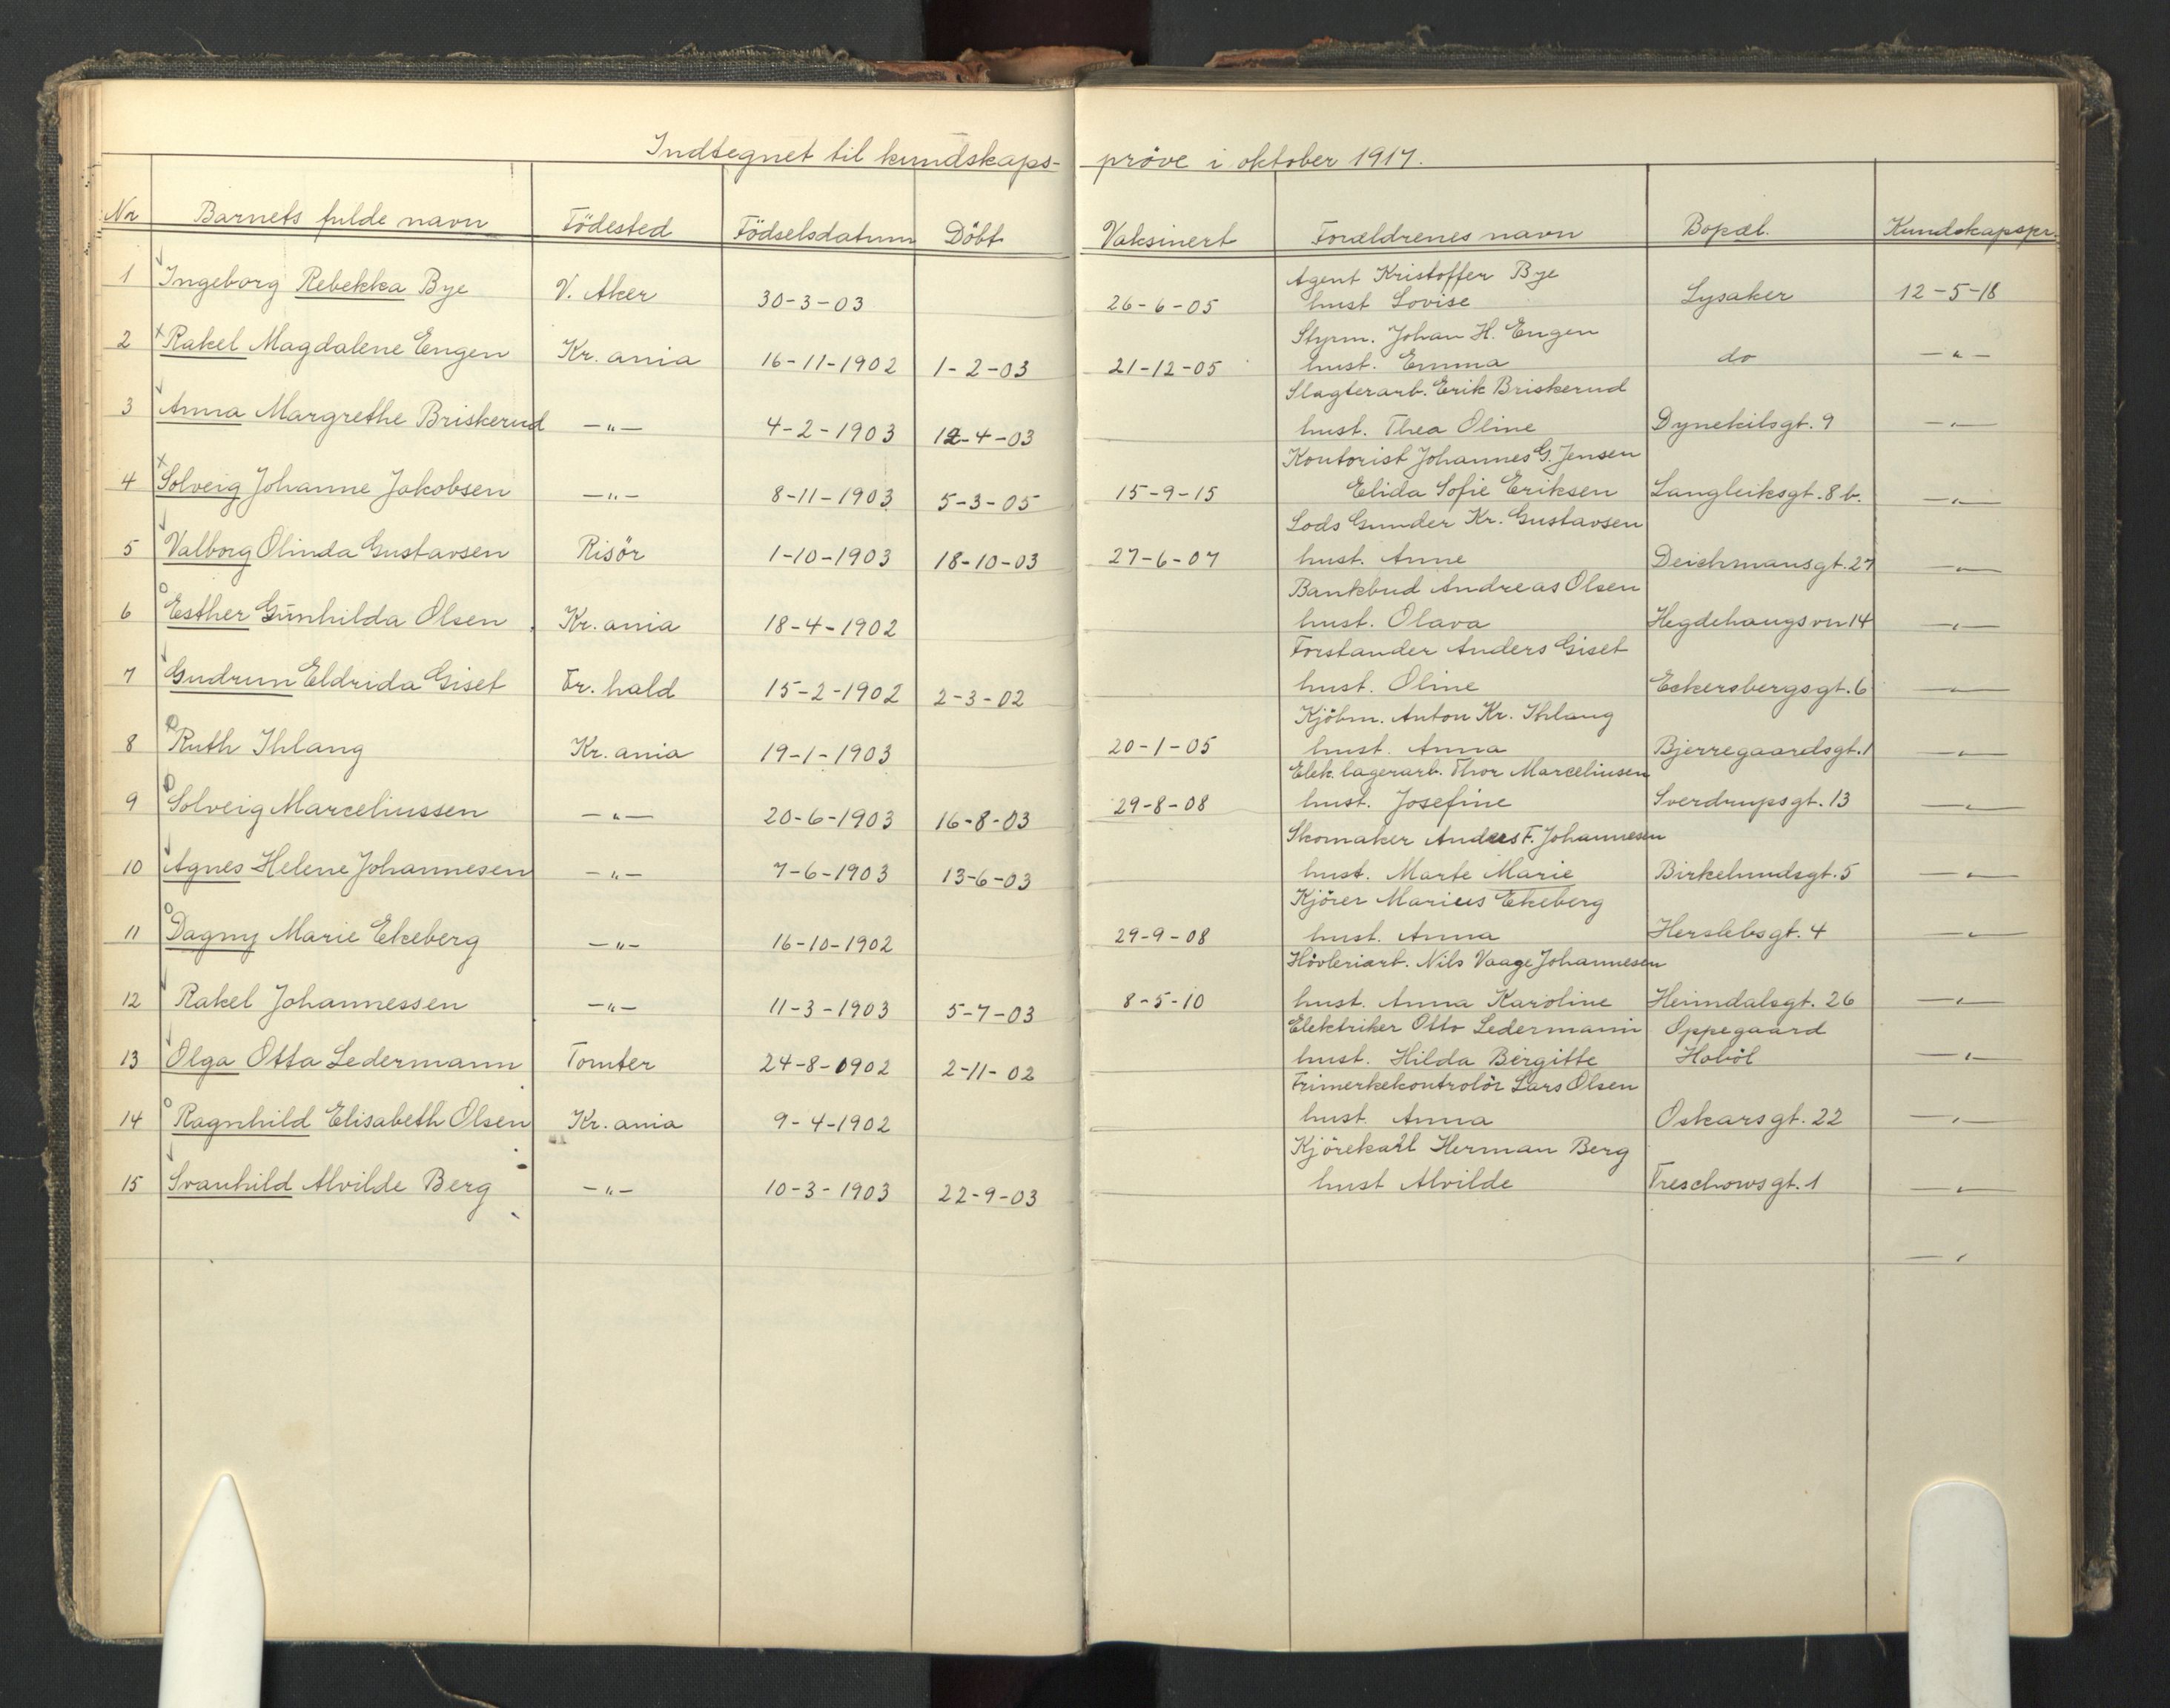 Indtegnet til kundskaps- pröve i oktober 1917.
Nr Barnets fulde navn Födested Födselsdatum Döbt Vaksinert Forældrenes navn Bopæl. Kundskapspr.
Agent Kristoffer Bye
1 Ingeborg Rebekka Bye V. Aker 30-3-03 26-6-05 hust Lovise Lysaker 12-5-18
Styrm. Johan H. Engen
2 x Rakel Magdalene Engen Kr. ania 16-11-1902 1-2-03 21-12-05 hust. Emma do —"—
Slagterarb. Erik Briskerud
3 Anna Margrethe Briskerud —"— 4-2-1903 12-4-03 hust. Thea Oline Dynekilsgt. 9 —"—
Kontorist Johannes G. Jensen
4 x Solveig Johanne Jakobsen —"— 8-11-1903 5-3-05 15-9-15 Elida Sofie Eriksen Langleiksgt. 8 b. —"—
Lods Gunder Kr. Gustavsen
5 Valborg Olinda Gustavsen Risör 1-10-1903 18-10-03 27-6-07 hust. Anne Deichmansgt. 27 —"—
Bankbud Andreas Olsen
6 o Esther Gunhilda Olsen Kr. ania 18-4-1902 hust. Olava Hegdehaugsvn 14 —"—
Forstander Anders Giset
7 Gudrun Eldrida Giset Fr. hald 15-2-1902 2-3-02 hust. Oline Eckersbergsgt. 6 —"—
Kjöbm. Anton Kr. Ihlang
8 Ruth Ihlang Kr. ania 19-1-1903 20-1-05 hust. Anna Bjerregaardsgt. 1 —"—
Elek. lagerarb. Thor Marceliusen
9 Solveig Marceliussen —"— 20-6-1903 16-8-03 29-8-08 hust. Josefine Sverdrupsgt. 13 —"—
Skomaker Anders F. Johannesen
10 Agnes Helene Johannesen —"— 7-6-1903 13-6-03 hust. Marte Marie Birkelundsgt. 5 —"—
Kjörer Marius Ekeberg
11 o Dagny Marie Ekeberg —"— 16-10-1902 29-9-08 hust. Anna Herslebsgt. 4 —"—
Hövleriarb. Nils Vaage Johannesen
12 Rakel Johannessen —"— 11-3-1903 5-7-03 8-5-10 hust. Anna Karoline Heimdalsgt. 26 —"—
Elektriker Otto Ledermann Oppegaard
13 Olga Otta Ledermann Tomter 24-8-1902 2-11-02 hust. Hilda Bergitte Hoböl —"—
Frimerkekontrolör Lars Olsen
14 o Ragnhild Elisabeth Olsen Kr. ania 9-4-1902 hust. Anna Oskarsgt. 22 —"—
Kjörekarl Herman Berg
15 Svanhild Alvilde Berg —"— 10-3-1903 22-9-03 hust Alvilde Treschowsgt. 1 —"—
—"